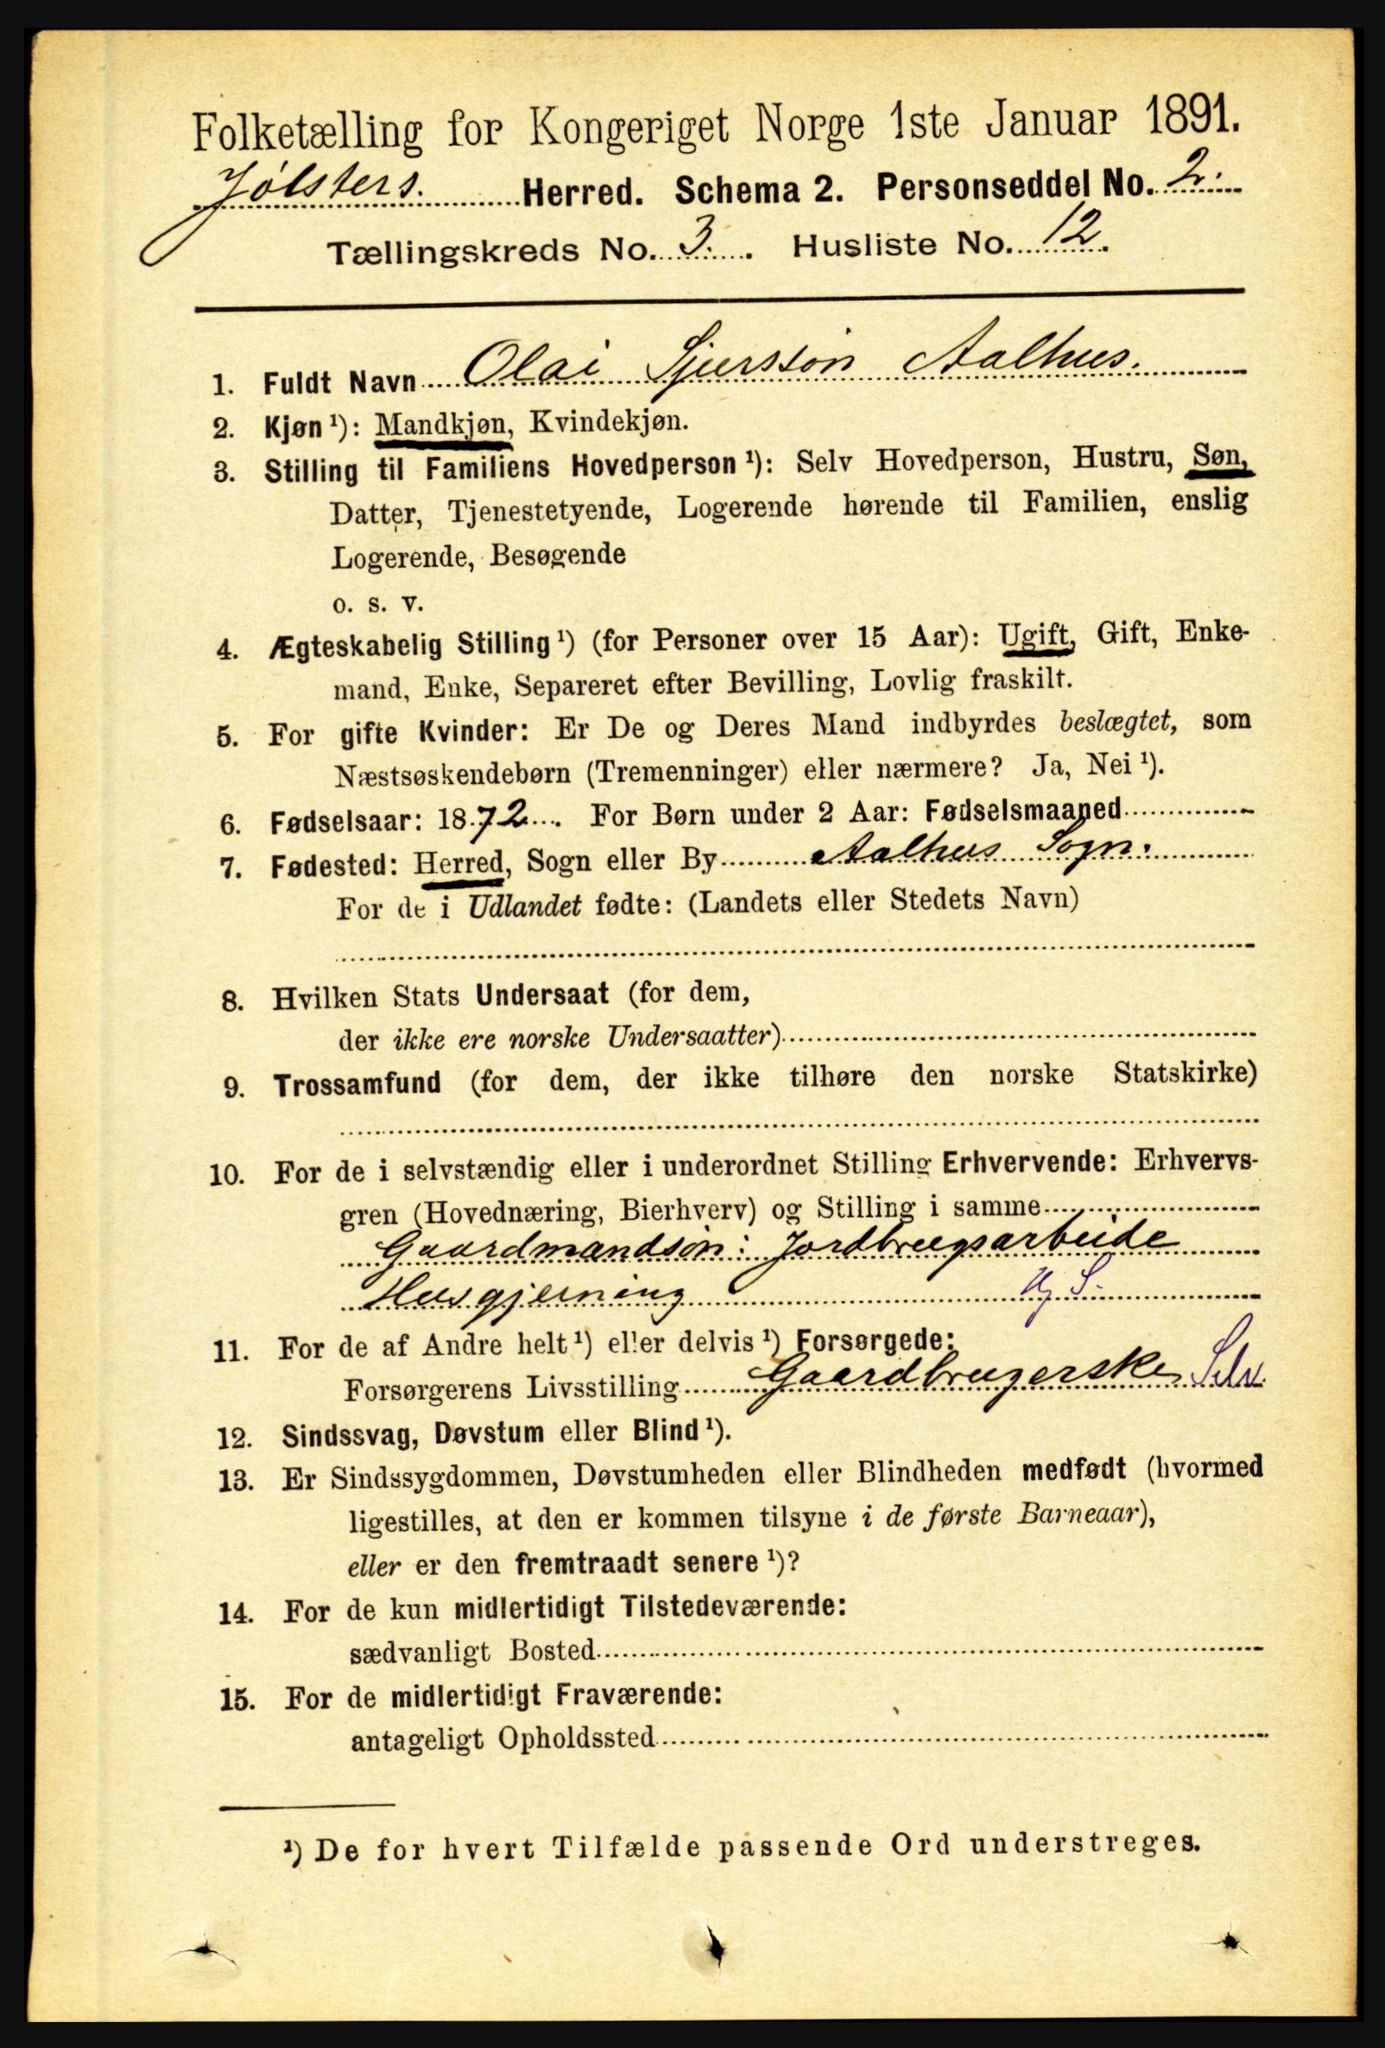 Folketælling for Kongeriget Norge 1ste Januar 1891.
Jølsters. Herred. Schema 2. Personseddel No. 2.
Tællingskreds No. 3. Husliste No. 12.
1. Fuldt Navn Olai Sjursson Aalhus.
2. Kjøn ¹): Mandkjøn, Kvindekjøn.
3. Stilling til Familiens Hovedperson ¹): Selv Hovedperson, Hustru, Søn,
Datter, Tjenestetyende, Logerende hørende til Familien, enslig
Logerende, Besøgende
o. s. v.
4. Ægteskabelig Stilling ¹) (for Personer over 15 Aar): Ugift, Gift, Enke-
mand, Enke, Separeret efter Bevilling, Lovlig fraskilt.
5. For gifte Kvinder: Er De og Deres Mand indbyrdes beslægtet, som
Næstsøskendebørn (Tremenninger) eller nærmere? Ja, Nei ¹).
6. Fødselsaar: 1872. For Børn under 2 Aar: Fødselsmaaned
7. Fødested: Herred, Sogn eller By Aalhus Sogn.
For de i Udlandet fødte: (Landets eller Stedets Navn)
8. Hvilken Stats Undersaat (for dem,
der ikke ere norske Undersaatter)
9. Trossamfund (for dem, der ikke tilhøre den norske Statskirke)
10. For de i selvstændig eller i underordnet Stilling Erhvervende: Erhvervs-
gren (Hovednæring, Bierhverv) og Stilling i samme
Gaardmandsön: Jordbrugsarbeide
Husgjerning S.
11. For de af Andre helt ¹) eller delvis ¹) Forsørgede:
Forsørgerens Livsstilling Gaardbrugerske Selv.
12. Sindssvag, Døvstum eller Blind ¹).
13. Er Sindssygdommen, Døvstumheden eller Blindheden medfødt (hvormed
ligestilles, at den er kommen tilsyne i de første Barneaar),
eller er den fremtraadt senere ¹)?
14. For de kun midlertidigt Tilstedeværende:
sædvanligt Bosted
15. For de midlertidigt Fraværende:
antageligt Opholdssted
¹) De for hvert Tilfælde passende Ord understreges.